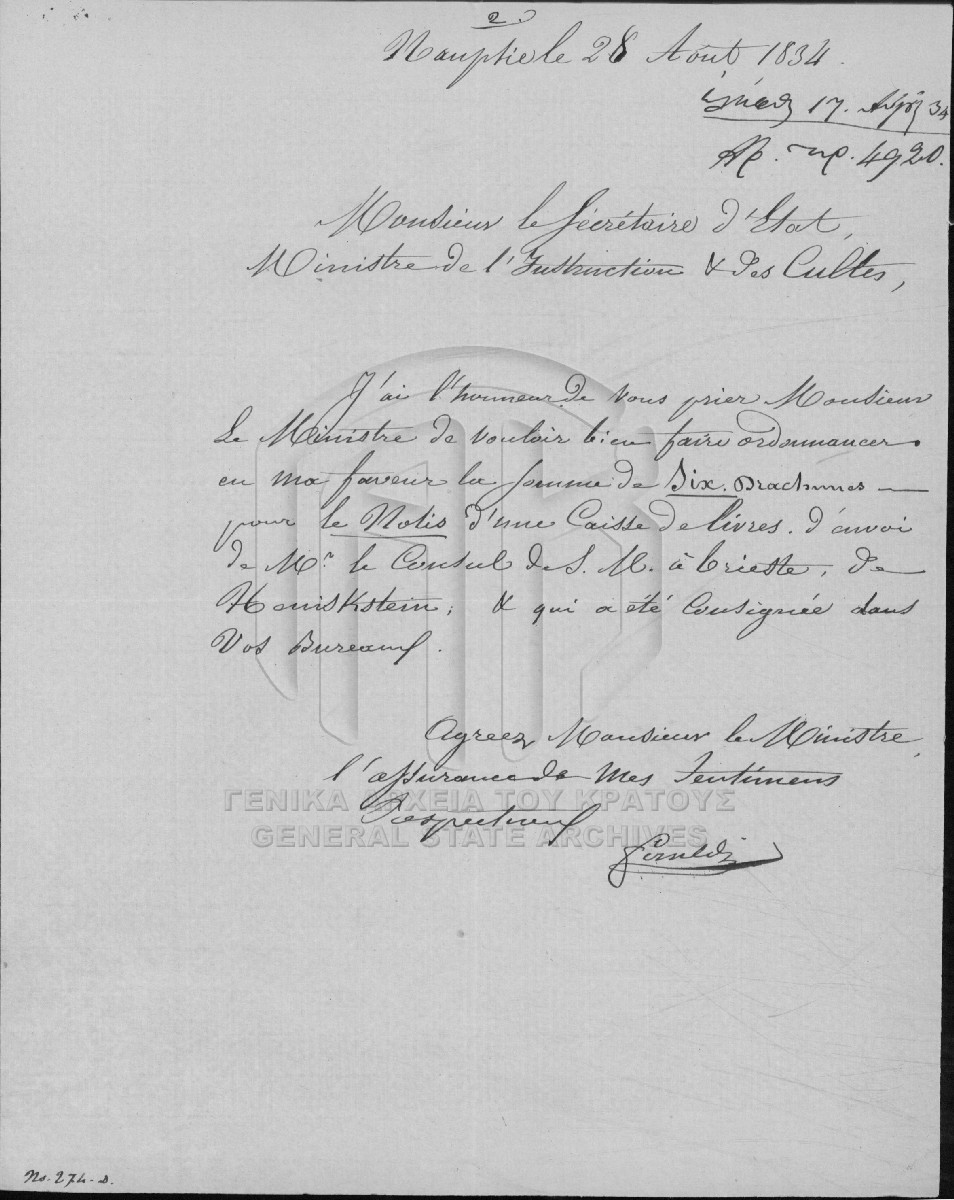 2.
Nauplie le 28 Août 1834.
17. Αυγ 34
Αρ. πρ. 4920.
Monsieur le Sécrétaire d'Etat,
Ministre de l'Instruction & des Cultes,
J'ai l'honneur de vous prier Monsieur
Le Ministre de vouloir bien faire ordonnancer
en ma faveur la somme de Six. Drachmes —
pour le Nolis d'une Caisse de livres. d'envoi
de Mr. le Consul de S. M. à Trieste, de
Hönikstein, & qui a été Consignée dans
Vos Bureaux.
Agreez Monsieur le Ministre,
l'assurance de mes Sentimens
Respectueux
ΓΕΝΙΚΑ ΑΡΧΕΙΑ ΤΟΥ ΚΡΑΤΟΥΣ
GENERAL STATE ARCHIVES
No. 274-D.